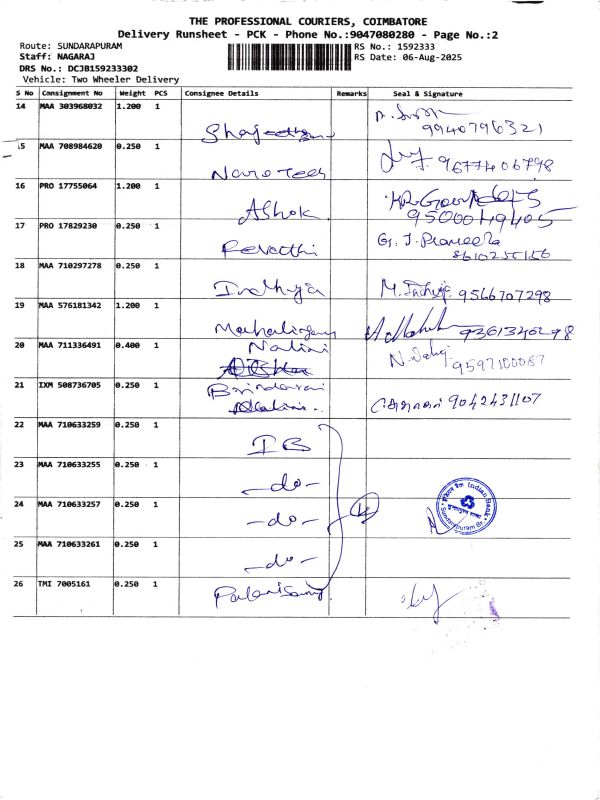 THE PROFESSIONAL COURIERS, COIMBATORE
Delivery Runsheet - PCK - Phone No.:9047080280 - Page No.:2
Route: SUNDARAPURAM
Staff: NAGARAJ
DRS No.: DCJB159233302
Vehicle: Two Wheeler Delivery
RS No.: 1592333
RS Date: 06-Aug-2025
S No Consignment No Weight PCS Consignee Details Remarks Seal & Signature
14 MAA 303968032 1.200 1
9940796321
15 MAA 708984620 0.250 1 9677406798
16 PRO 17755064 1.200 1 Ashok
9500049405
17 PRO 17829230 0.250 1 Revathi G. J. Prameela
8610255156
18 MAA 710297278 0.250 1 Indhuja M. Indhuja 9566707298
19 MAA 576181342 1.200 1 Mahalingam
20 MAA 711336491 0.400 1 Nalini
9597100087
21 IXM 508736705 0.250 1
9042431107
22 MAA 710633259 0.250 1 IB
23 MAA 710633255 0.250 1 -do-
24 MAA 710633257 0.250 1 -do- 4
Indian Bank
Sundarapuram Br.
25 MAA 710633261 0.250 1 -do-
26 TMI 7005161 0.250 1 Palanisamy